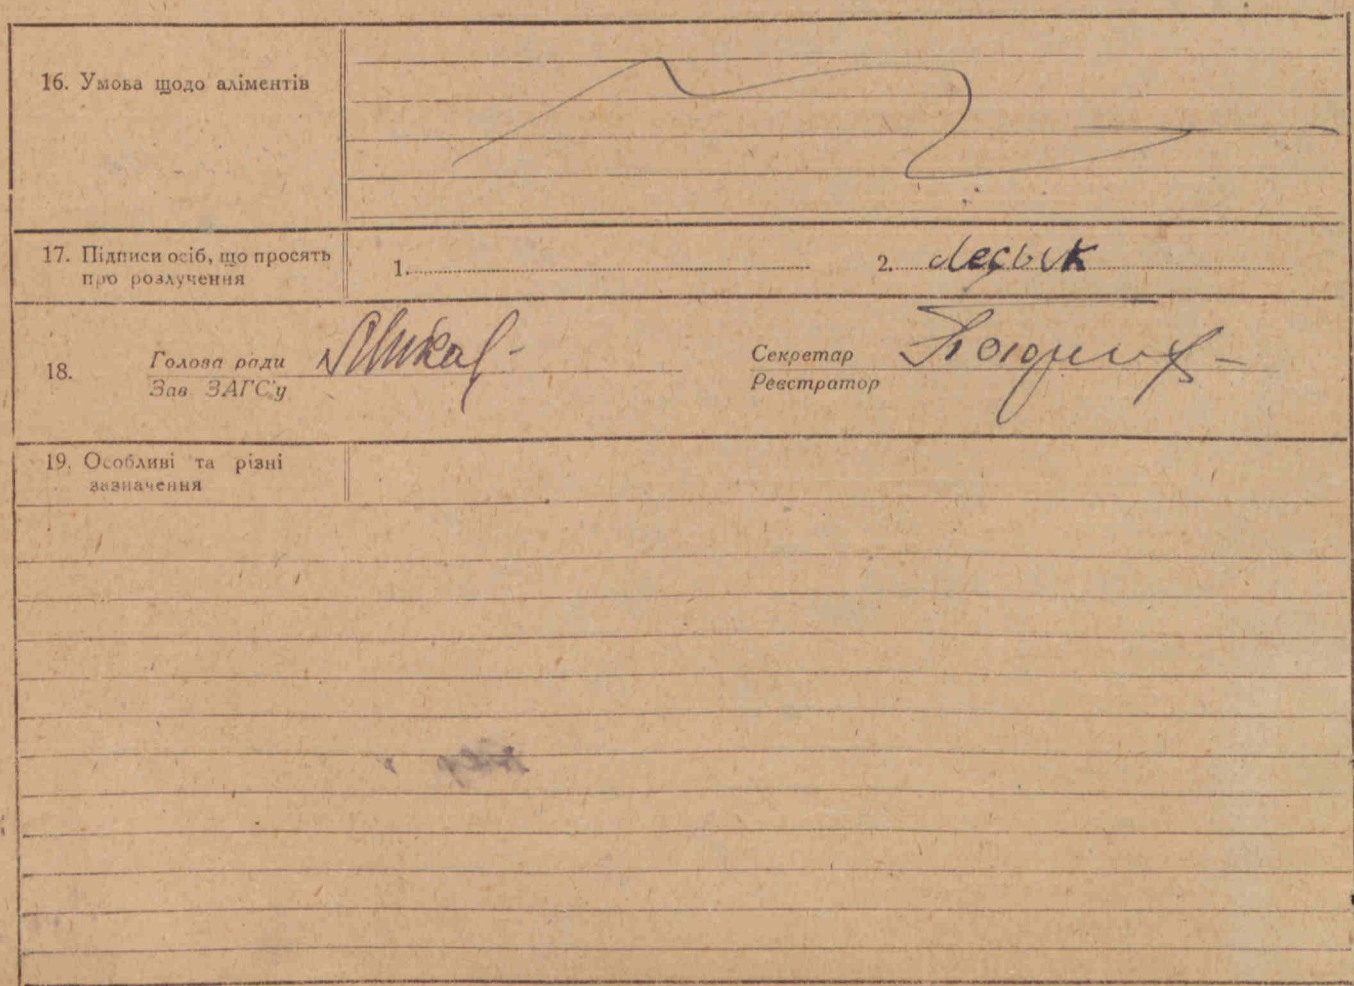 16. Умова щодо аліментів
17. Підписи осіб, що просять
про розлучення
1. 2. Лесык
18. Голова ради Секретар
Зав. ЗАГС'у Реєстратор
19. Особливі та різні
зазначення